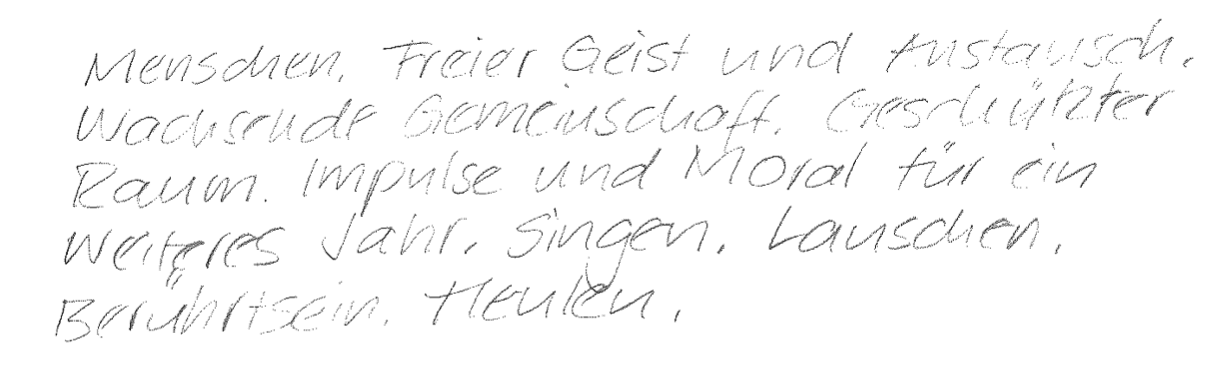 Menschen. Freier Geist und Austausch.
Wachsende Gemeinschaft. Geschützter
Raum. Impulse und Moral für ein
weiteres Jahr. Singen. Lauschen.
Berührtsein. Heulen.